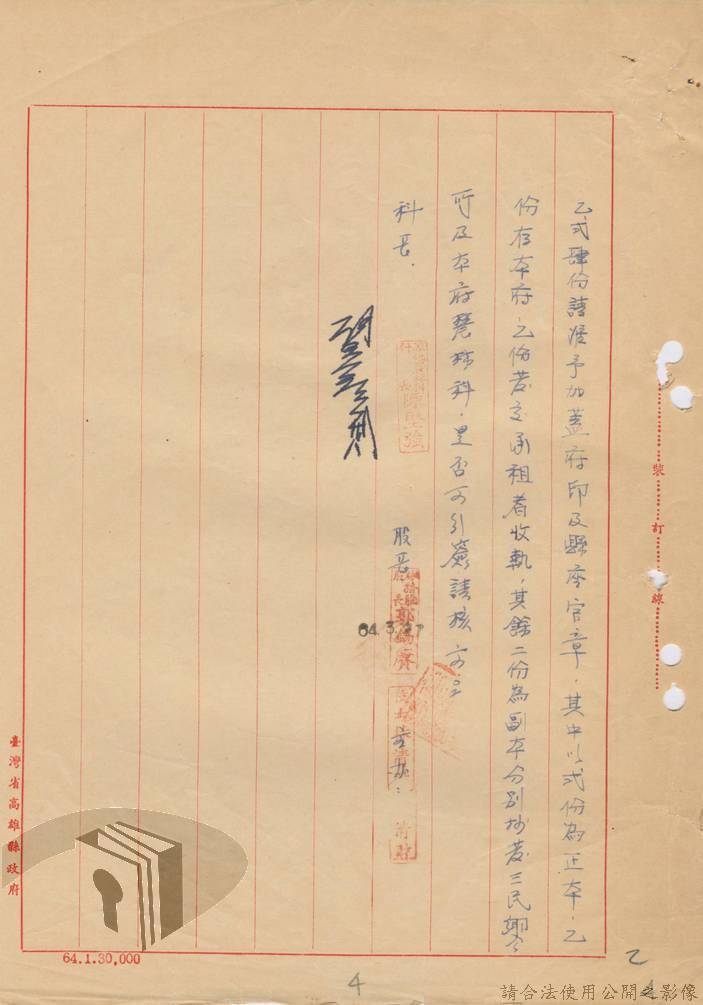 乙式肆份請准予加蓋府印及縣座官章，其中以弍份為正本，乙
份存本府，乙份發交承租者收執，其餘二份為副本分別抄發三民鄉公
所及本府 科，是否可引簽請核示。
科長
股長
64.3.27
裝訂線
臺灣省高雄縣政府
64.1.30,000
4
乙
請合法使用公開之影像